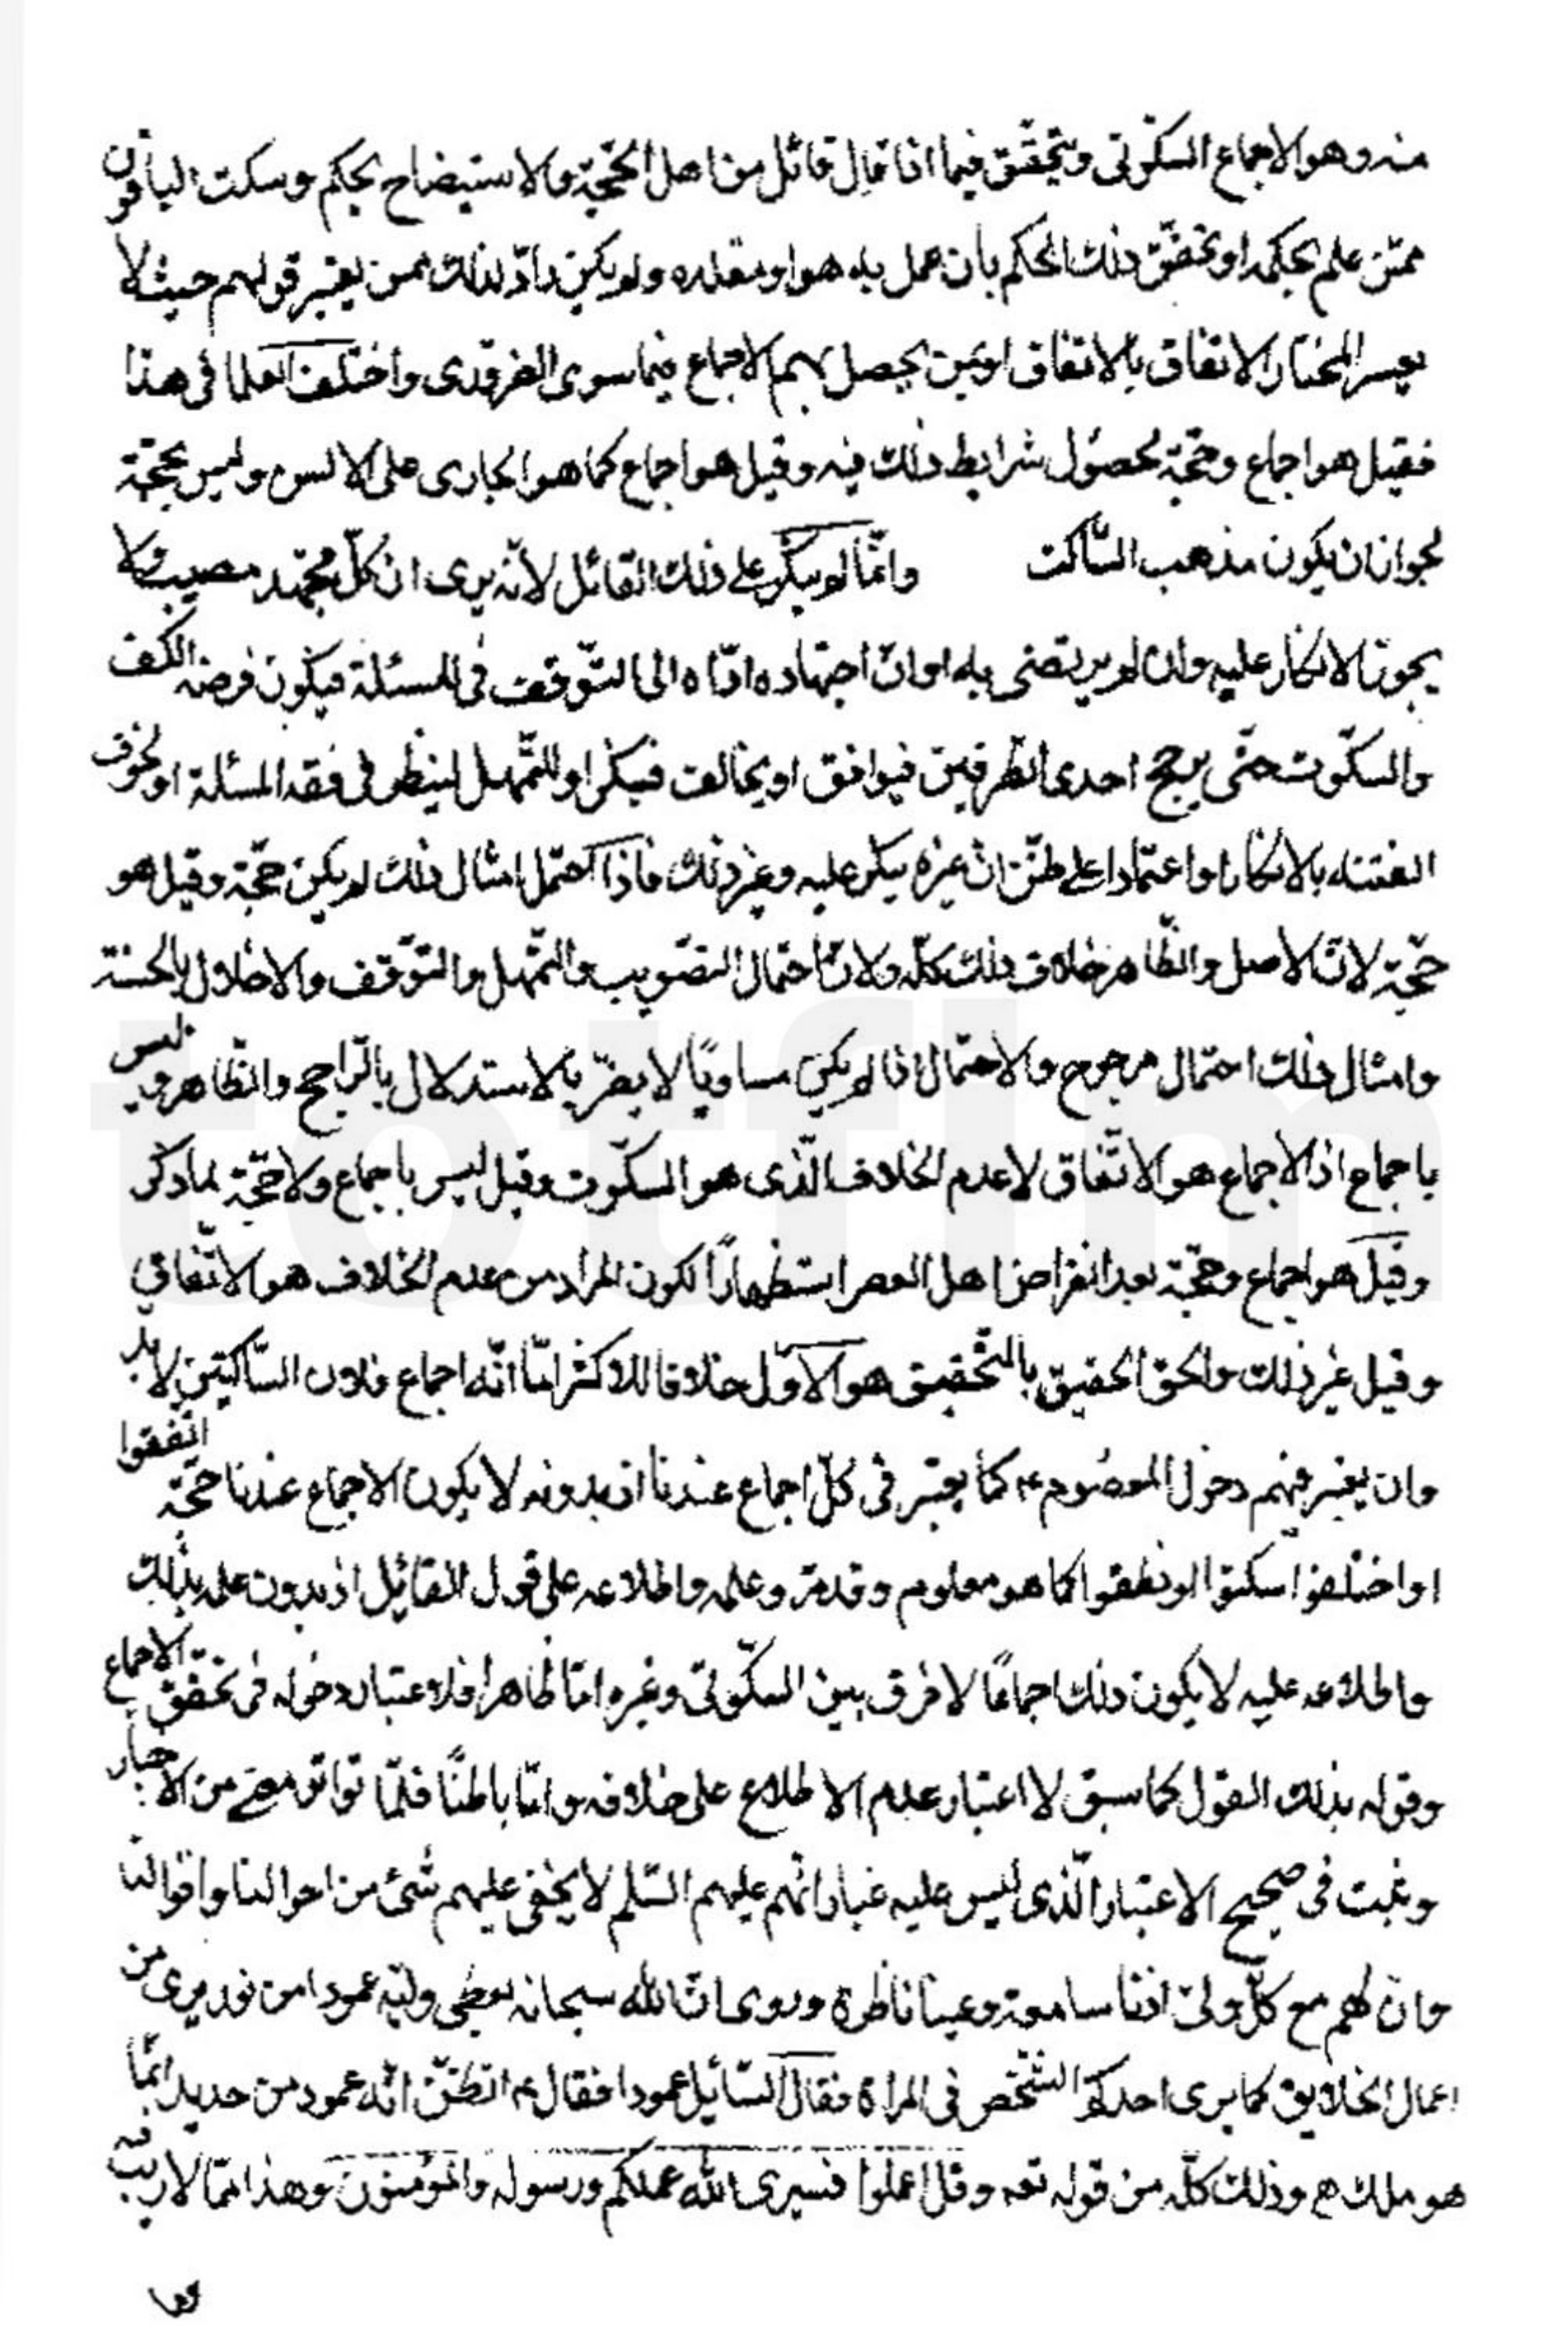 منه وهو الاجماع السكوتی ويتحقّق فيما اذا قال قائل من اهل الحجّة والاستيضاح بحكم وسكت الباقون
ممّن علم بحكمه او تحقّق ذلك الحكم بان عمل به هو او مقلده ولم يكن رادّ لذلك ممن يعتبر قولهم حيث لا
يعسر اختبار الاتفاق بالاتفاق او بمن يحصل بهم الاجماع فيما سوى الضروری واختلف العلما فی هذا
فقيل هو اجماع وحجّة لحصول شرايط ذلك فيه وقيل هو اجماع كما هو الجاری علی الالسن وليس بحجّة
لجواز ان يكون مذهب السّاكت وانّما لم ينكر علی ذلك القائل لانّه يری ان كلّ مجتهد مصيب فلا
يجوز الانكار عليه وان لم يرتضی به او ان اجتهاده ادّاه الی التّوقف فی المسئلة فيكون فرضه الكف
والسكّوت حتّی يرجح احدی الطّرفين فيوافق او يخالف فينكر او للتّمهل لينظر فی فقه المسئلة او لخوف
الفتنه بالانكار او اعتمادا علی ظنّ انّ غيره ينكر عليه وغير ذلك فاذا احتمل امثال ذلك لم يكن حجّة وقيل هو
حجّة لانّ الاصل والظّاهر خلاف ذلك كلّه ولانّ احتمال التصّويب والتّمهل والتوّقف والاخلال بالحسبة
وامثال ذلك احتمال مرجوح والاحتمال اذا لم يكن مساويًا لا يضرّ بالاستدلال بالرّاجح والظّاهر وليس
باجماع اذ الاجماع هو الاتّفاق لا عدم الخلاف الّذی هو السكّوت وقيل ليس باجماع ولا حجّة لما ذكر
وقيل هو اجماع وحجّة بعد انقراض اهل العصر استظهارًا لكون المراد من عدم الخلاف هو الاتّفاق
وقيل غير ذلك والحق الحقيق بالتّحقيق هو الاوّل خلافا للاكثر امّا انّه اجماع فلان السّاكتين لا بد
وان يعتبر فيهم دخول المعصوم ع كما يعتبر فی كلّ اجماع عندنا اذ بدونه لا يكون الاجماع عندنا حجّة اتّفقوا
او اختلفوا سكتوا او نطقوا كما هو معلوم وقد مرّ وعلمه واطلاعه علی قول القائل اذ بدون علمه بذلك
واطلاعه عليه لا يكون ذلك اجماعًا لا فرق بين السكّوتی وغيره امّا ظاهرا فلاعتبار دخوله فی تحقّق الاجماع
وقوله بذلك القول كما سبق لا اعتبار عدم الاطلاع علی خلافه وامّا باطنًا فلمّا تواتر معنی من الاخبار
وثبت فی صحيح الاعتبار الّذی ليس عليه غبار انّهم عليهم السّلم لا يخفی عليهم شئ من احوالنا واقوالنا
وانّ لهم مع كلّ ولیّ اذنا سامعة وعينا ناظرة وروی انّ الله سبحانه يعطی وليّه عمودا من نور يری من
اعمال الخلايق كما يری احدكم الشّخص فی المراة فقال السّائل عمودا فقال ع اتظنّ انّه عمود من حديد انّما
هو ملك ع وذلك كلّه من قوله تعه وقل اعملوا فسيری الله عملكم ورسوله والمؤمنون وهذا ممّا لا ريب فيه